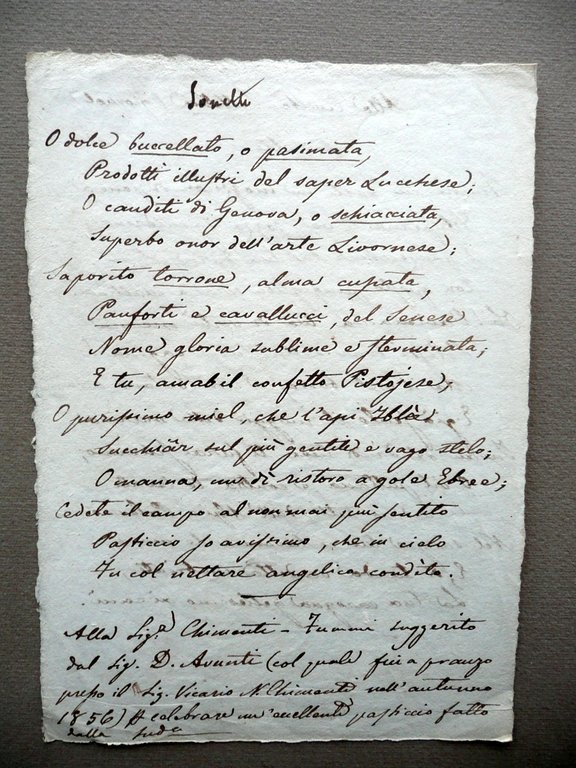 Sonetti
O dolce buccellato, o pasimata,
Prodotti illustri del saper Lucchese;
O canditi di Genova, o schiacciata,
Superbo onor dell'arte Livornese;
Saporito torrone, alma cupata,
Panforti e cavallucci, del Senese
Nome gloria sublime e sterminata;
E tu, amabil confetto Pistojese;
O purissimo miel, che l'api Iblà
Succhiâr sul più gentile e vago stelo;
O manna, un dì ristoro a gole Ebree;
Cedete il campo al non mai più sentito
Pasticcio soavissimo, che in cielo
Fu col nettare angelico condito.
Alla Sig.ª Chimenti - Fummi suggerito
dal Sig. D. Avanti (col quale fui a pranzo
presso il Sig. Vicario N. Chimenti nell'autunno
1856) celebrare un'eccellente pasticcio fatto
dalla sudª